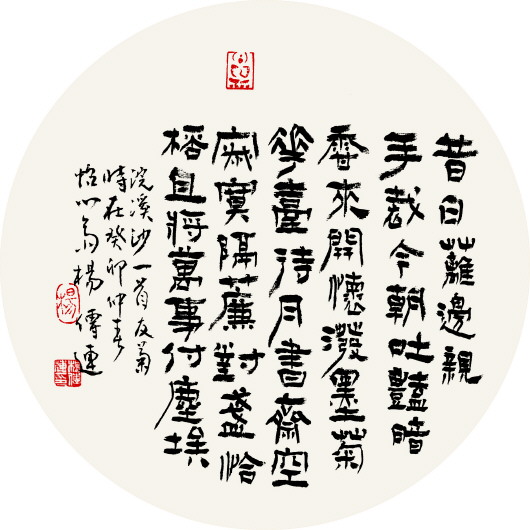 昔日蘺邊親
手栽今朝吐豔暗
香來開懷潑墨菊
花臺待月書齋空
寂寞隔薕對盞恰
且將萬事付塵埃
浣溪沙一首友菊
時在癸卯仲春
楊傳連
楊